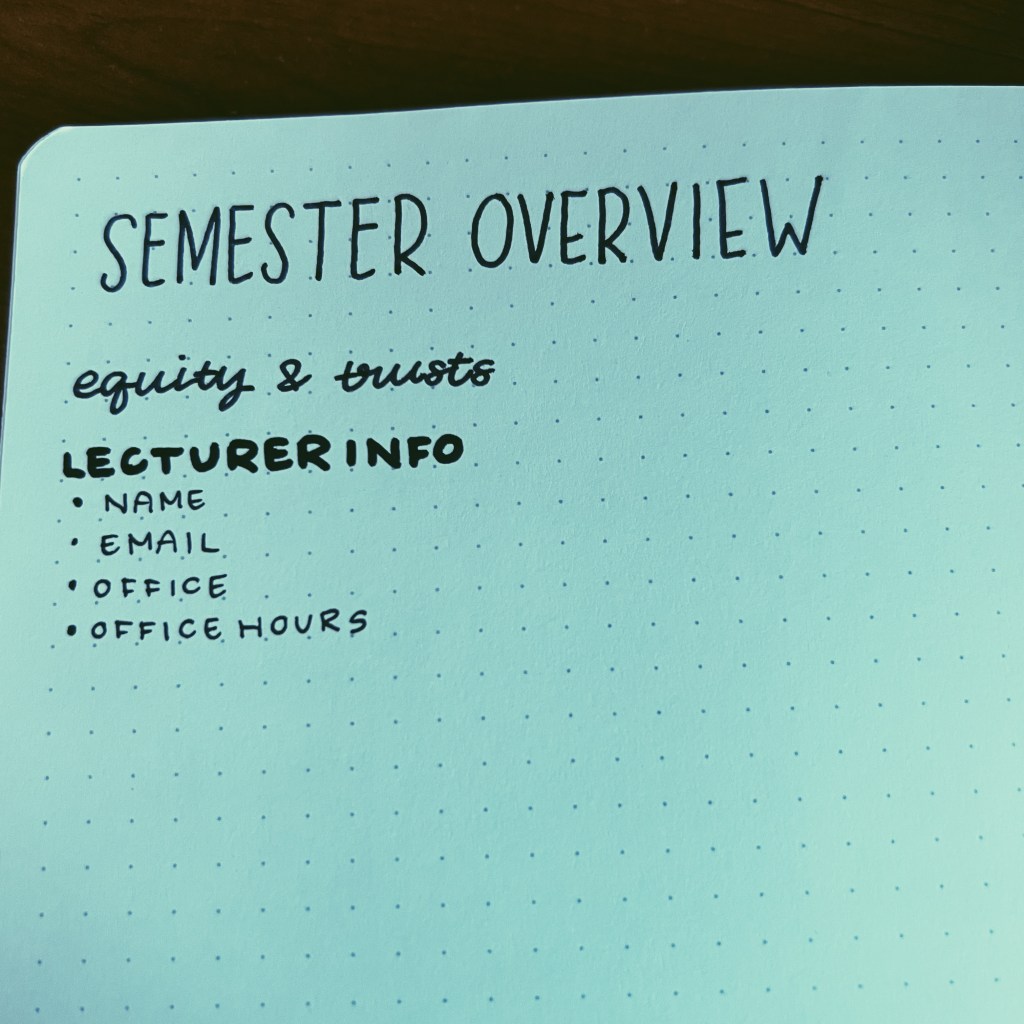 SEMESTER OVERVIEW
equity & trusts
LECTURER INFO
• NAME
• EMAIL
• OFFICE
• OFFICE HOURS